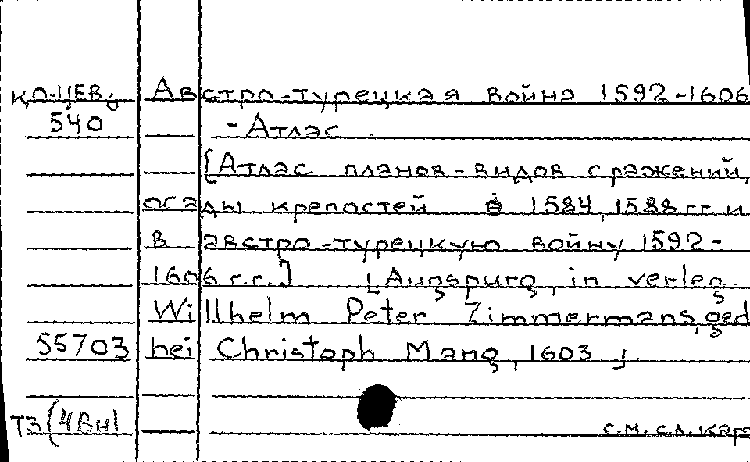 Австро-турецкая война 1592-1606
540 - Атлас.
[Атлас планов-видов сражений,
осады крепостей в 1584, 1588 гг и
в австро-турецкую войну 1592-
1606 г.г.] [Augspurg, in verleg
Willhelm Peter Zimmermans, ged
55703 hei Christoph Mang, 1603]
ТЗ(4Вн)
с.м. сл. карт